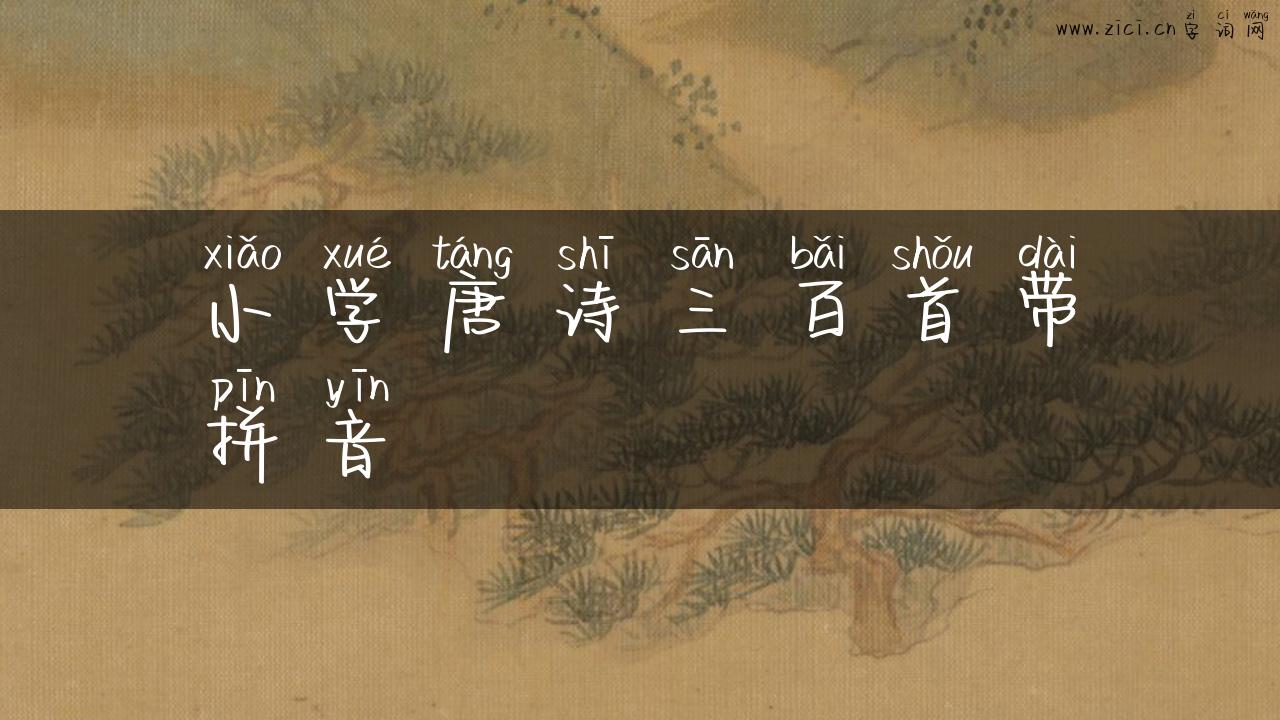 zì cí wǎng
www.zici.cn 字词网
xiǎo xué táng shī sān bǎi shǒu dài
小学唐诗三百首带
pīn yīn
拼音